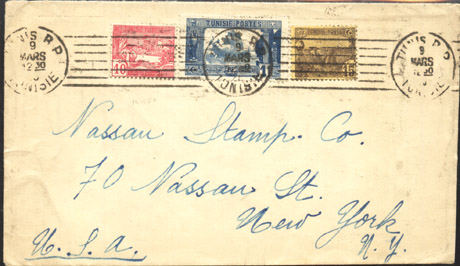 TUNIS R.P.
9
MARS
12 30
TUNISIE
10
TUNISIE POSTES
TUNIS R.P.
9
MARS
TUNISIE
15
TUNIS R.P.
9
MARS
12 30
TUNISIE
Nassau Stamp Co.
70 Nassau St.
New York
U.S.A.
N.Y.